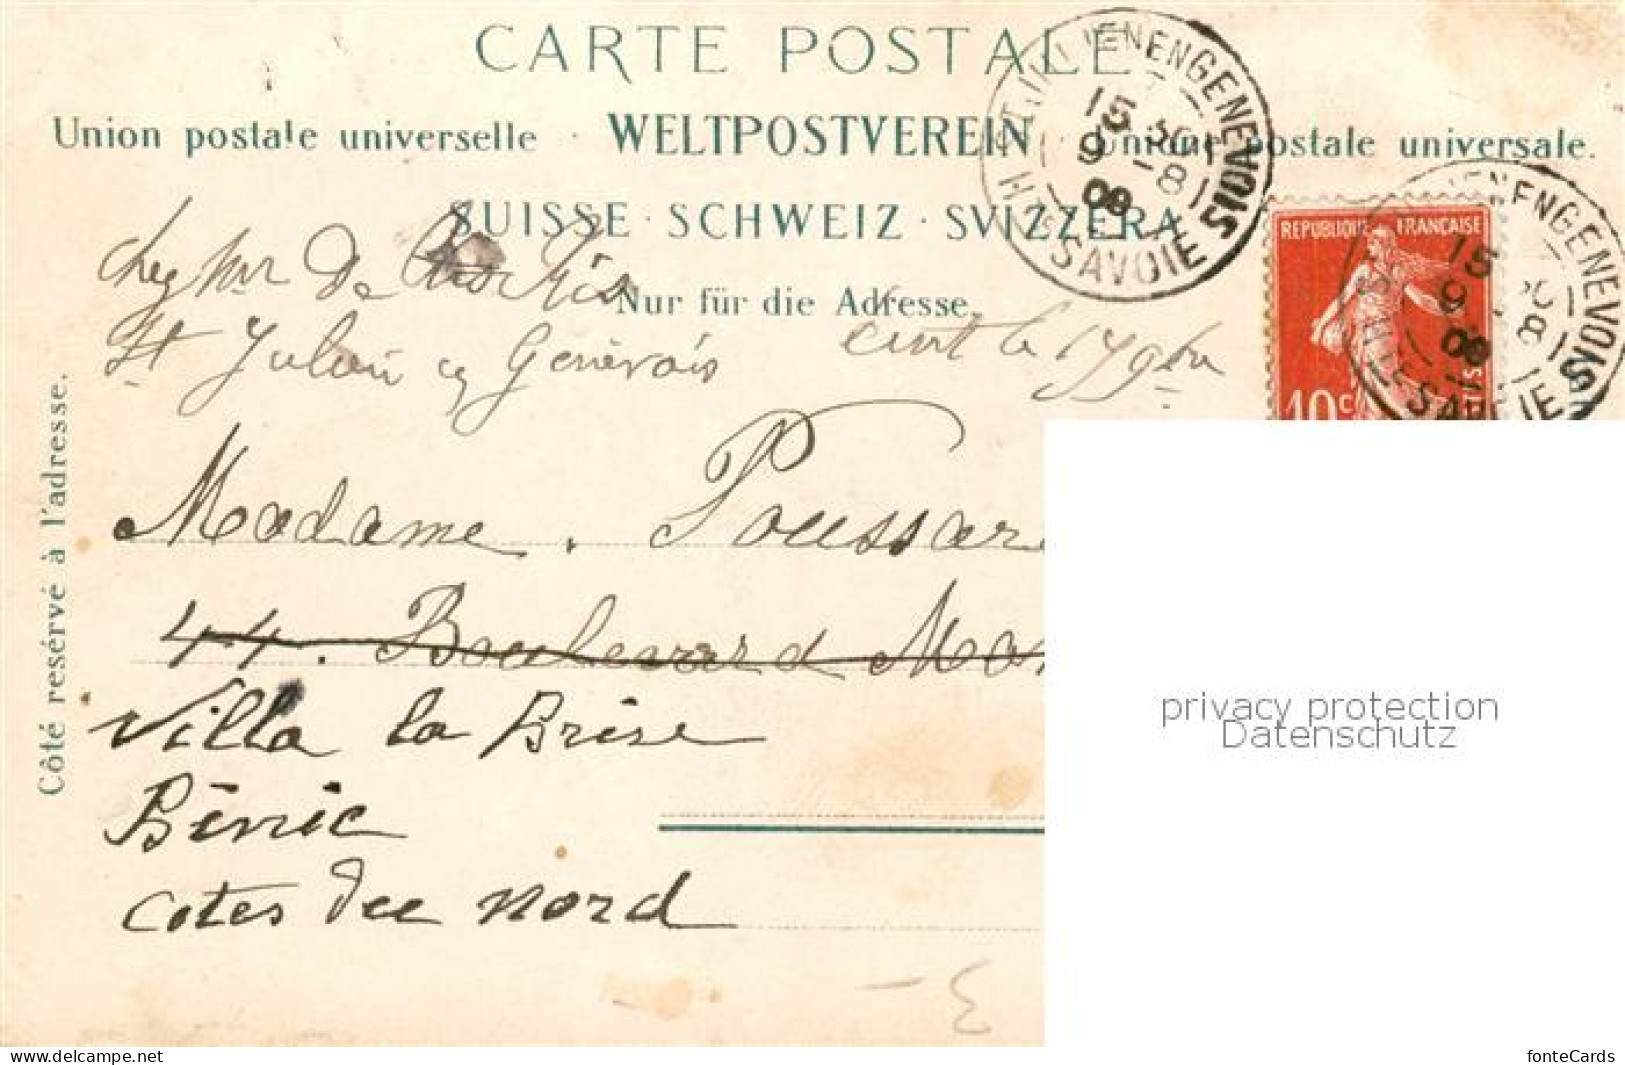 CARTE POSTALE
Union postale universelle · WELTPOSTVEREIN · Unione postale universale.
SUISSE · SCHWEIZ · SVIZZERA
Nur für die Adresse.
Côté resérvé à l'adresse.
ST JULIEN EN GENEVOIS
15 8
9
08
HTE SAVOIE
REPUBLIQUE FRANÇAISE
10c
JULIEN EN GENEVOIS
15 8
9
08
SAVOIE
chez Mr De
St Julien en Genevois
le 15 9bre
Madame. Poussar
44. Boulevard Mon
Villa la Brise
Binic
Cotes du nord
privacy protection
Datenschutz
www.delcampe.net
fonteCards